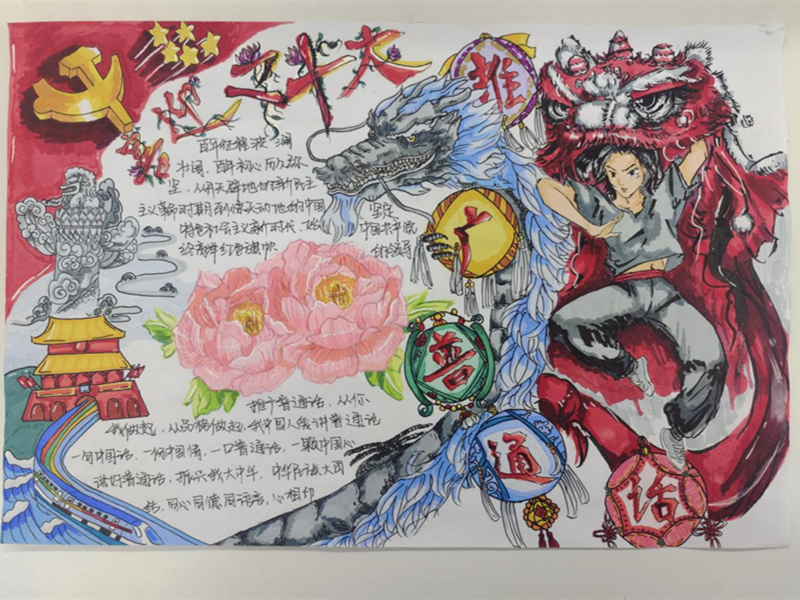 喜迎二十大
百年征程波澜
壮阔，百年初心历久弥
坚，从开天辟地的新民主
主义革命时期到惊天动地的中国
特色社会主义新时代，始
终高举红色旗帜
坚定
中国共产党
的领导
推
广
普
通
话
推广普通话，从你
我做起，从做起，我中国人讲普通话
一句中国话，一份中国情，一口普通话，一颗中国心
讲好普通话，振兴我大中华，中华民族大团
结，同心同德同语言，心相印